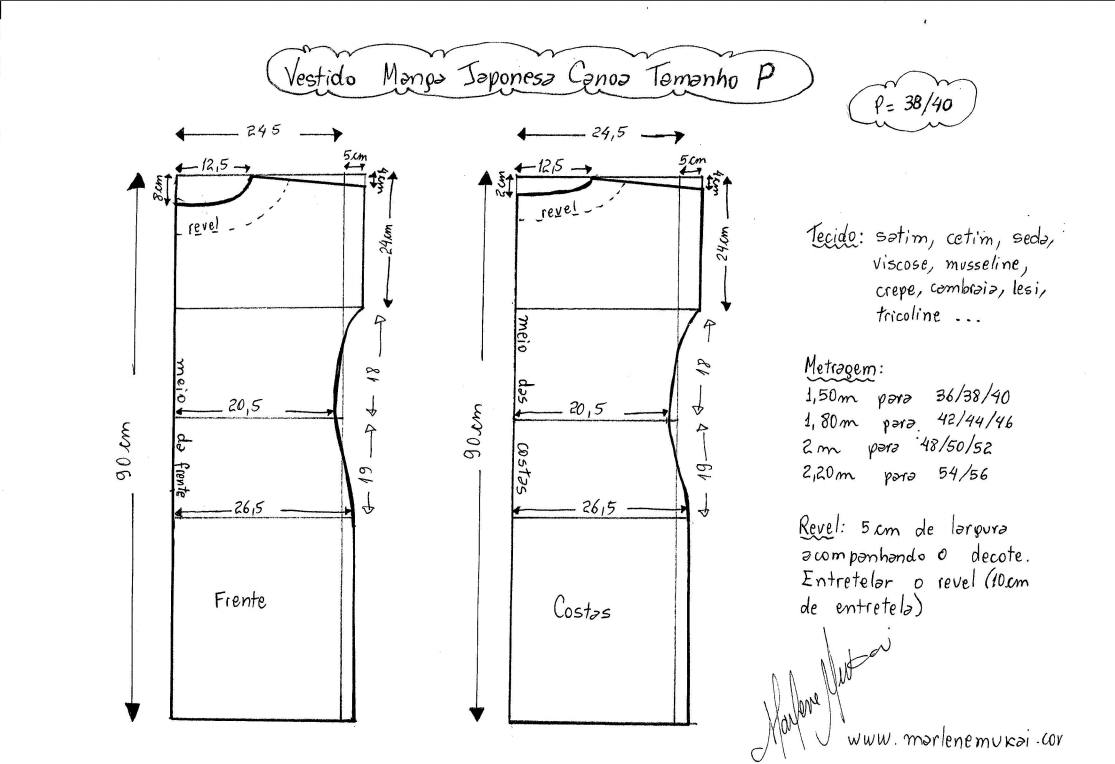 Vestido Manga Japonesa Canoa Tamanho P
P= 38/40
24 5
12,5
5cm
4cm
8cm
revel
24cm
90cm
meio da frente
18
20,5
19
26,5
Frente
24,5
12,5
5cm
4cm
2cm
revel
24cm
90cm
meio das costas
18
20,5
19
26,5
Costas
Tecido: satim, cetim, seda,
viscose, musseline,
crepe, cambraia, lesi,
tricoline ...
Metragem:
1,50m para 36/38/40
1,80m para 42/44/46
2m para 48/50/52
2,20m para 54/56
Revel: 5cm de largura
acompanhando o decote.
Entretelar o revel (10cm
de entretela)
Marlene Mukai
www.marlenemukai.cor